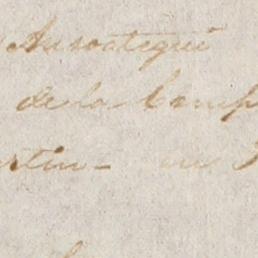 Ansoategui
de la Comp
rtin - en